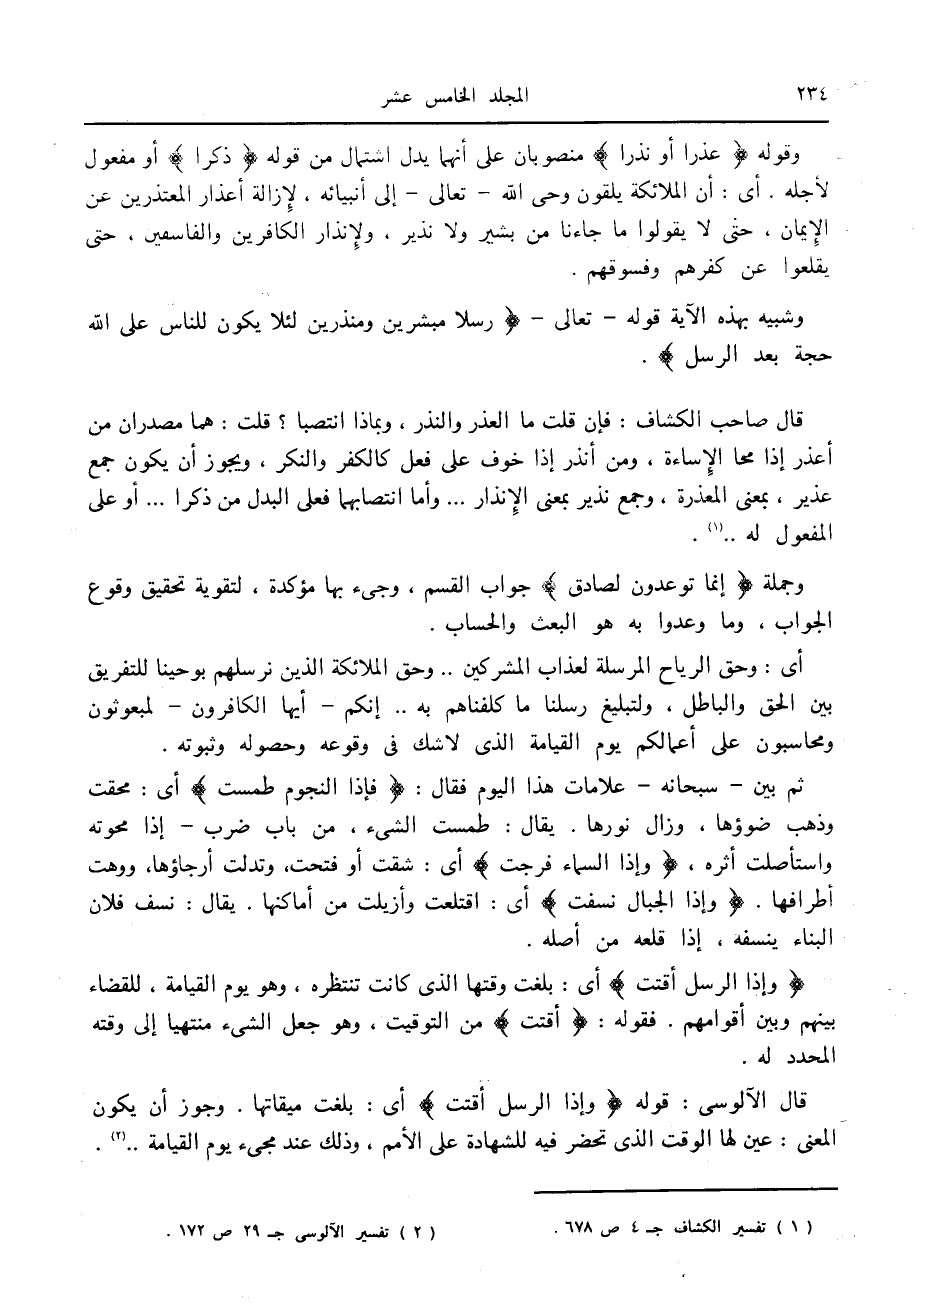 ٢٣٤ المجلد الخامس عشر
وقوله ﴿ عذرا أو نذرا ﴾ منصوبان على أنهما بدل اشتمال من قوله ﴿ ذكرا ﴾ أو مفعول
لأجله . أى : أن الملائكة يلقون وحى الله – تعالى – إلى أنبيائه ، لإزالة أعذار المعتذرين عن
الإيمان ، حتى لا يقولوا ما جاءنا من بشير ولا نذير ، ولإنذار الكافرين والفاسقين ، حتى
يقلعوا عن كفرهم وفسوقهم .
وشبيه بهذه الآية قوله – تعالى – ﴿ رسلا مبشرين ومنذرين لئلا يكون للناس على الله
حجة بعد الرسل ﴾ .
قال صاحب الكشاف : فإن قلت ما العذر والنذر ، وبماذا انتصبا ؟ قلت : هما مصدران من
أعذر إذا محا الإساءة ، ومن أنذر إذا خوف على فعل كالكفر والنكر ، ويجوز أن يكون جمع
عذير ، بمعنى المعذرة ، وجمع نذير بمعنى الإنذار ... وأما انتصابهما فعلى البدل من ذكرا ... أو على
المفعول له ..(١) .
وجملة ﴿ إنما توعدون لصادق ﴾ جواب القسم ، وجىء بها مؤكدة ، لتقوية تحقيق وقوع
الجواب ، وما وعدوا به هو البعث والحساب .
أى : وحق الرياح المرسلة لعذاب المشركين .. وحق الملائكة الذين نرسلهم بوحينا للتفريق
بين الحق والباطل ، ولتبليغ رسلنا ما كلفناهم به .. إنكم – أيها الكافرون – لمبعوثون
ومحاسبون على أعمالكم يوم القيامة الذى لاشك فى وقوعه وحصوله وثبوته .
ثم بين – سبحانه – علامات هذا اليوم فقال : ﴿ فإذا النجوم طمست ﴾ أى : محقت
وذهب ضوؤها ، وزال نورها . يقال : طمست الشىء ، من باب ضرب – إذا محوته
واستأصلت أثره ، ﴿ وإذا السماء فرجت ﴾ أى : شقت أو فتحت، وتدلت أرجاؤها، ووهت
أطرافها . ﴿ وإذا الجبال نسفت ﴾ أى : اقتلعت وأزيلت من أماكنها . يقال : نسف فلان
البناء ينسفه ، إذا قلعه من أصله .
﴿ وإذا الرسل أقتت ﴾ أى : بلغت وقتها الذى كانت تنتظره ، وهو يوم القيامة ، للقضاء
بينهم وبين أقوامهم . فقوله : ﴿ أقتت ﴾ من التوقيت ، وهو جعل الشىء منتهيا إلى وقته
المحدد له .
قال الآلوسى : قوله ﴿ وإذا الرسل أقتت ﴾ أى : بلغت ميقاتها . وجوز أن يكون
المعنى : عين لها الوقت الذى تحضر فيه للشهادة على الأمم ، وذلك عند مجىء يوم القيامة ..(٢) .
( ١ ) تفسير الكشاف جـ ٤ ص ٦٧٨ . ( ٢ ) تفسير الآلوسى جـ ٢٩ ص ١٧٢ .